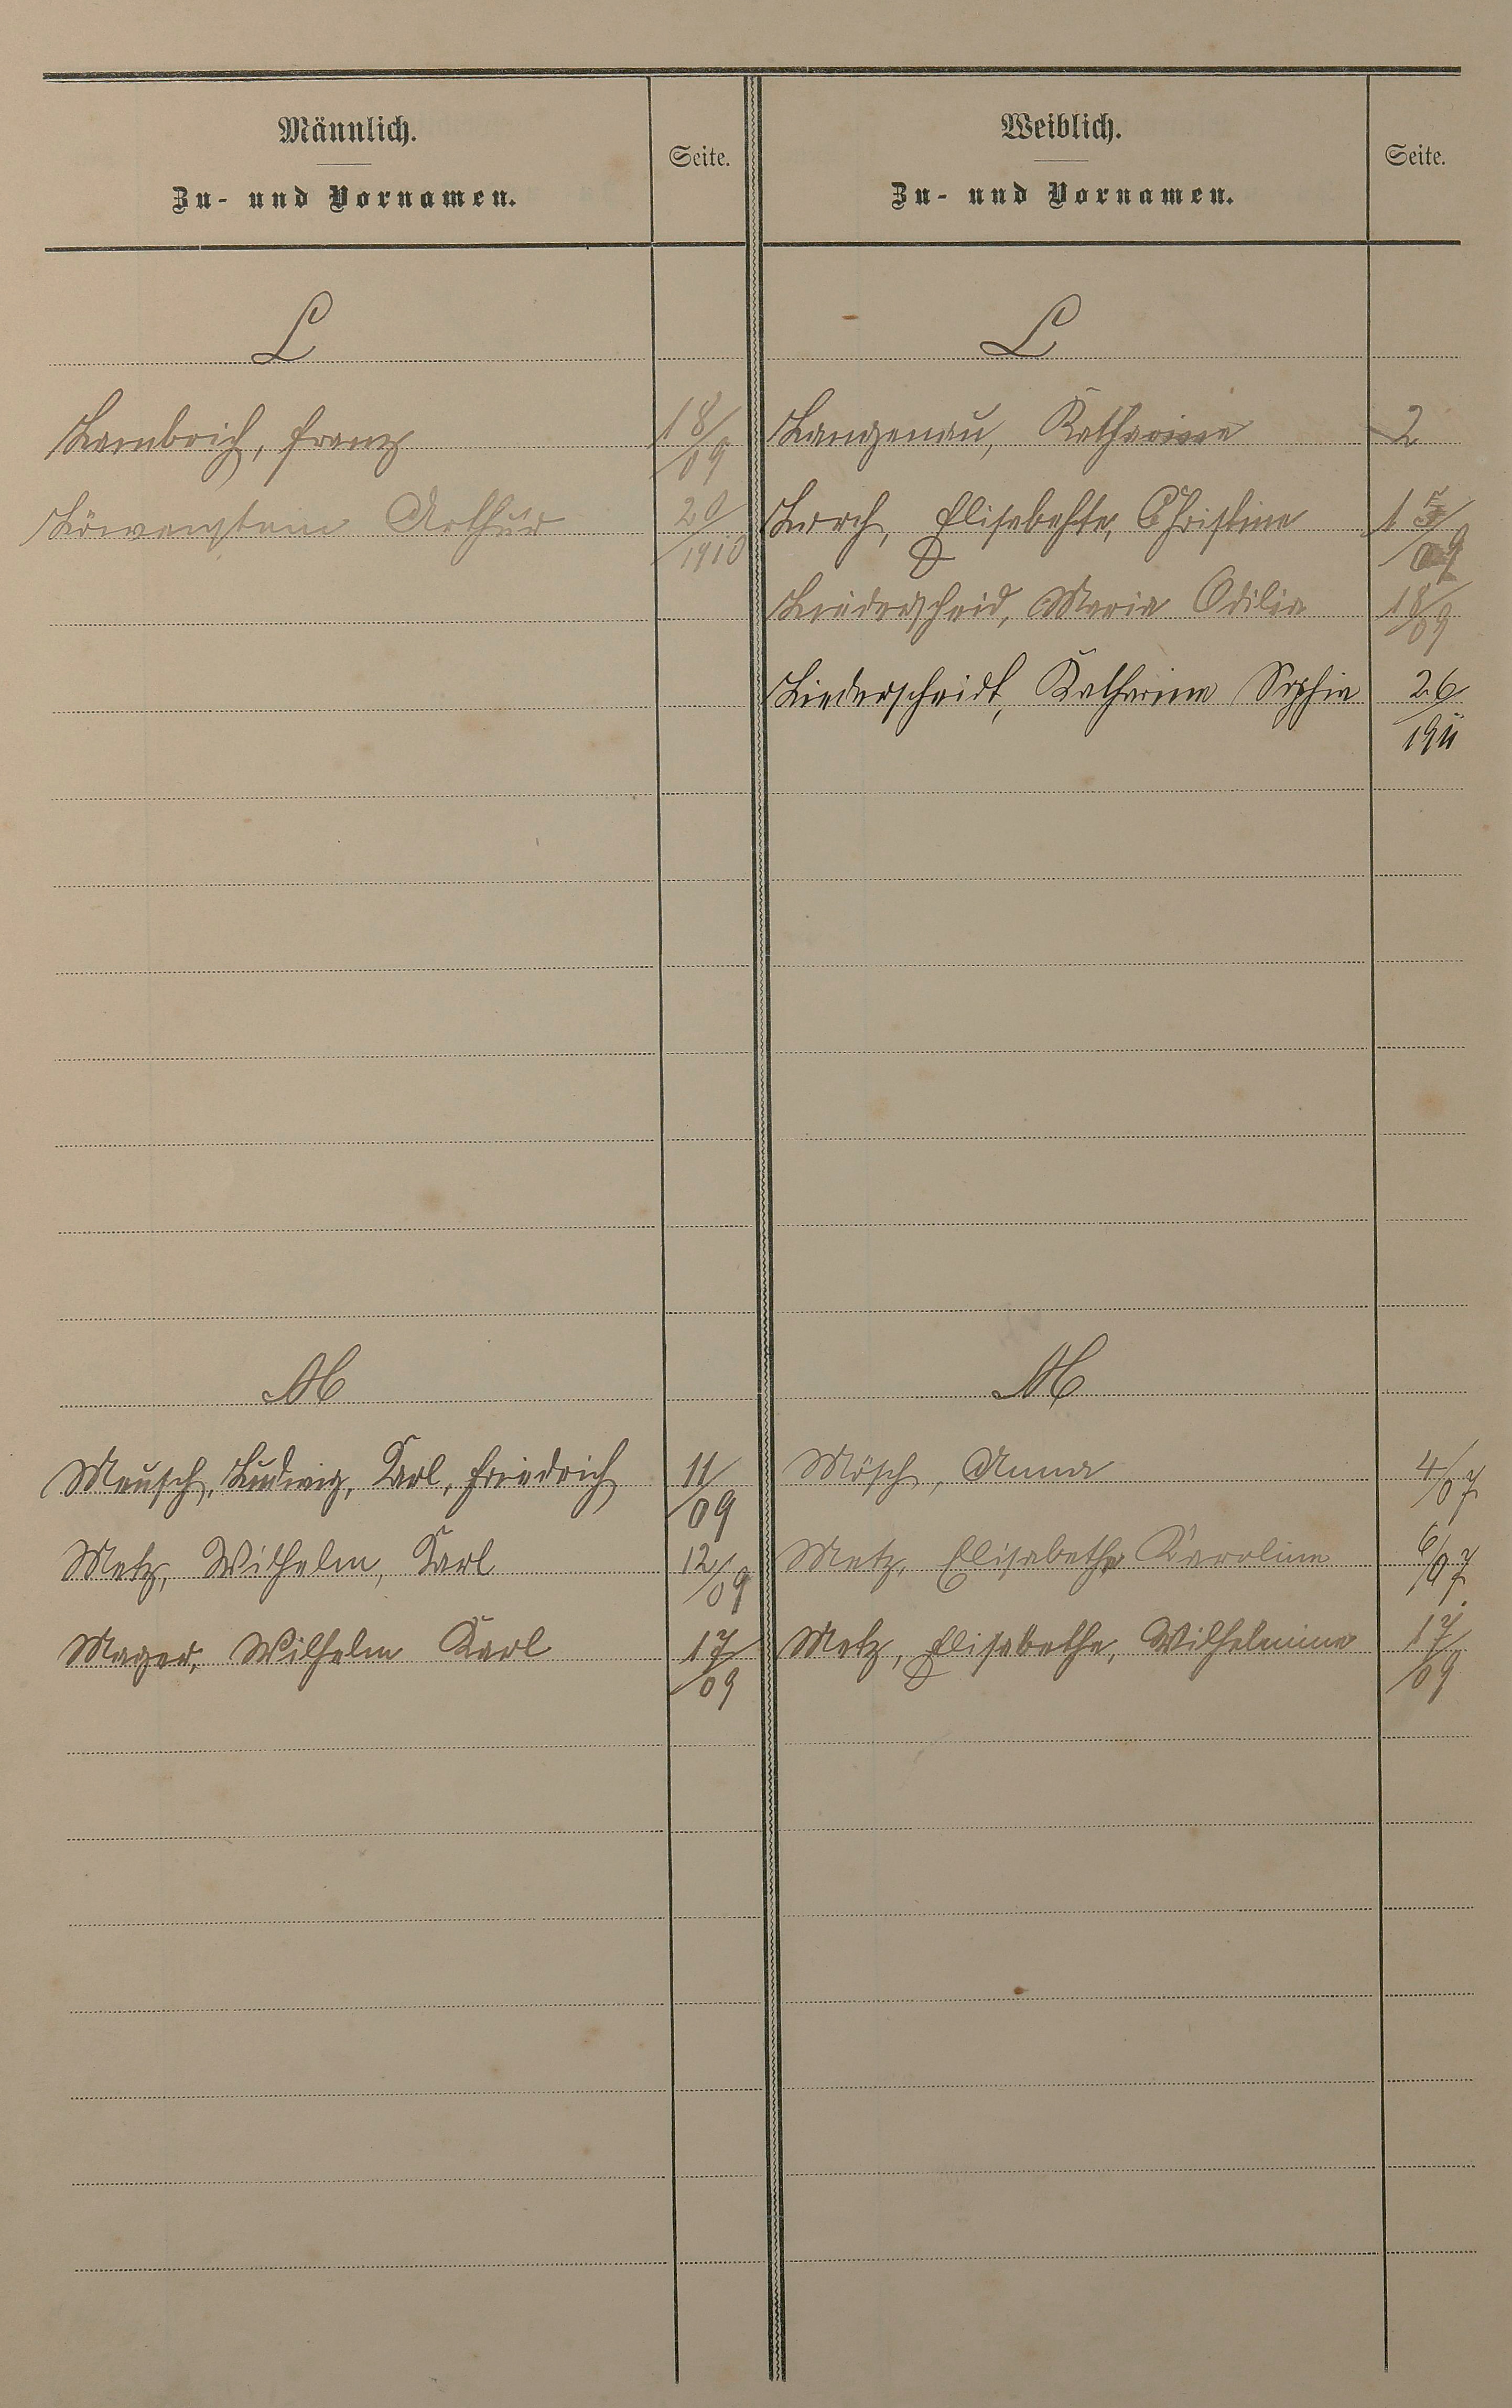 Männlich.
Zu- und Vornamen.
Seite.
Weiblich.
Zu- und Vornamen.
Seite.
L
L
Lambrich, Franz 18/09
Langenau, Katharina 2
Löwenstein Arthur 20/1910
Lorch, Elisabethe, Christine 15/09
Liederscheid, Maria Odilia 18/09
Liederscheidt, Katharina Sophia 26/1911
M
M
Meusch, Ludwig, Karl, Friedrich 11/09
Mösch, Anna 4/07
Metz, Wilhelm, Karl 12/09
Metz, Elisabethe Karoline 6/07
Mager, Wilhelm Karl 17/09
Metz, Elisabethe, Wilhelmine 17/09